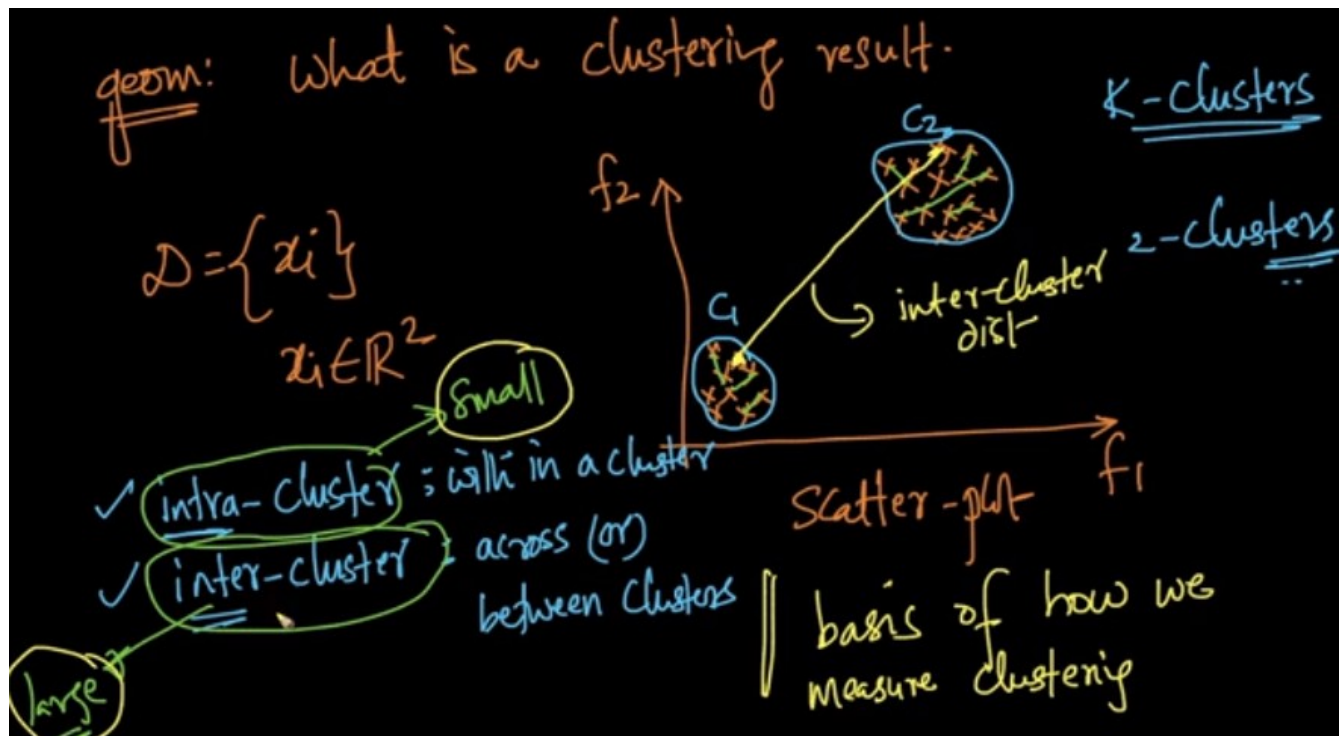 geom: What is a clustering result.
K-clusters
2-clusters
D = {xi}
xi ∈ R²
f2
C2
C1
inter-cluster
dist
f1
Scatter-plot
small
✓ intra-cluster : with in a cluster
✓ inter-cluster : across (or)
between clusters
large
basis of how we
measure clustering